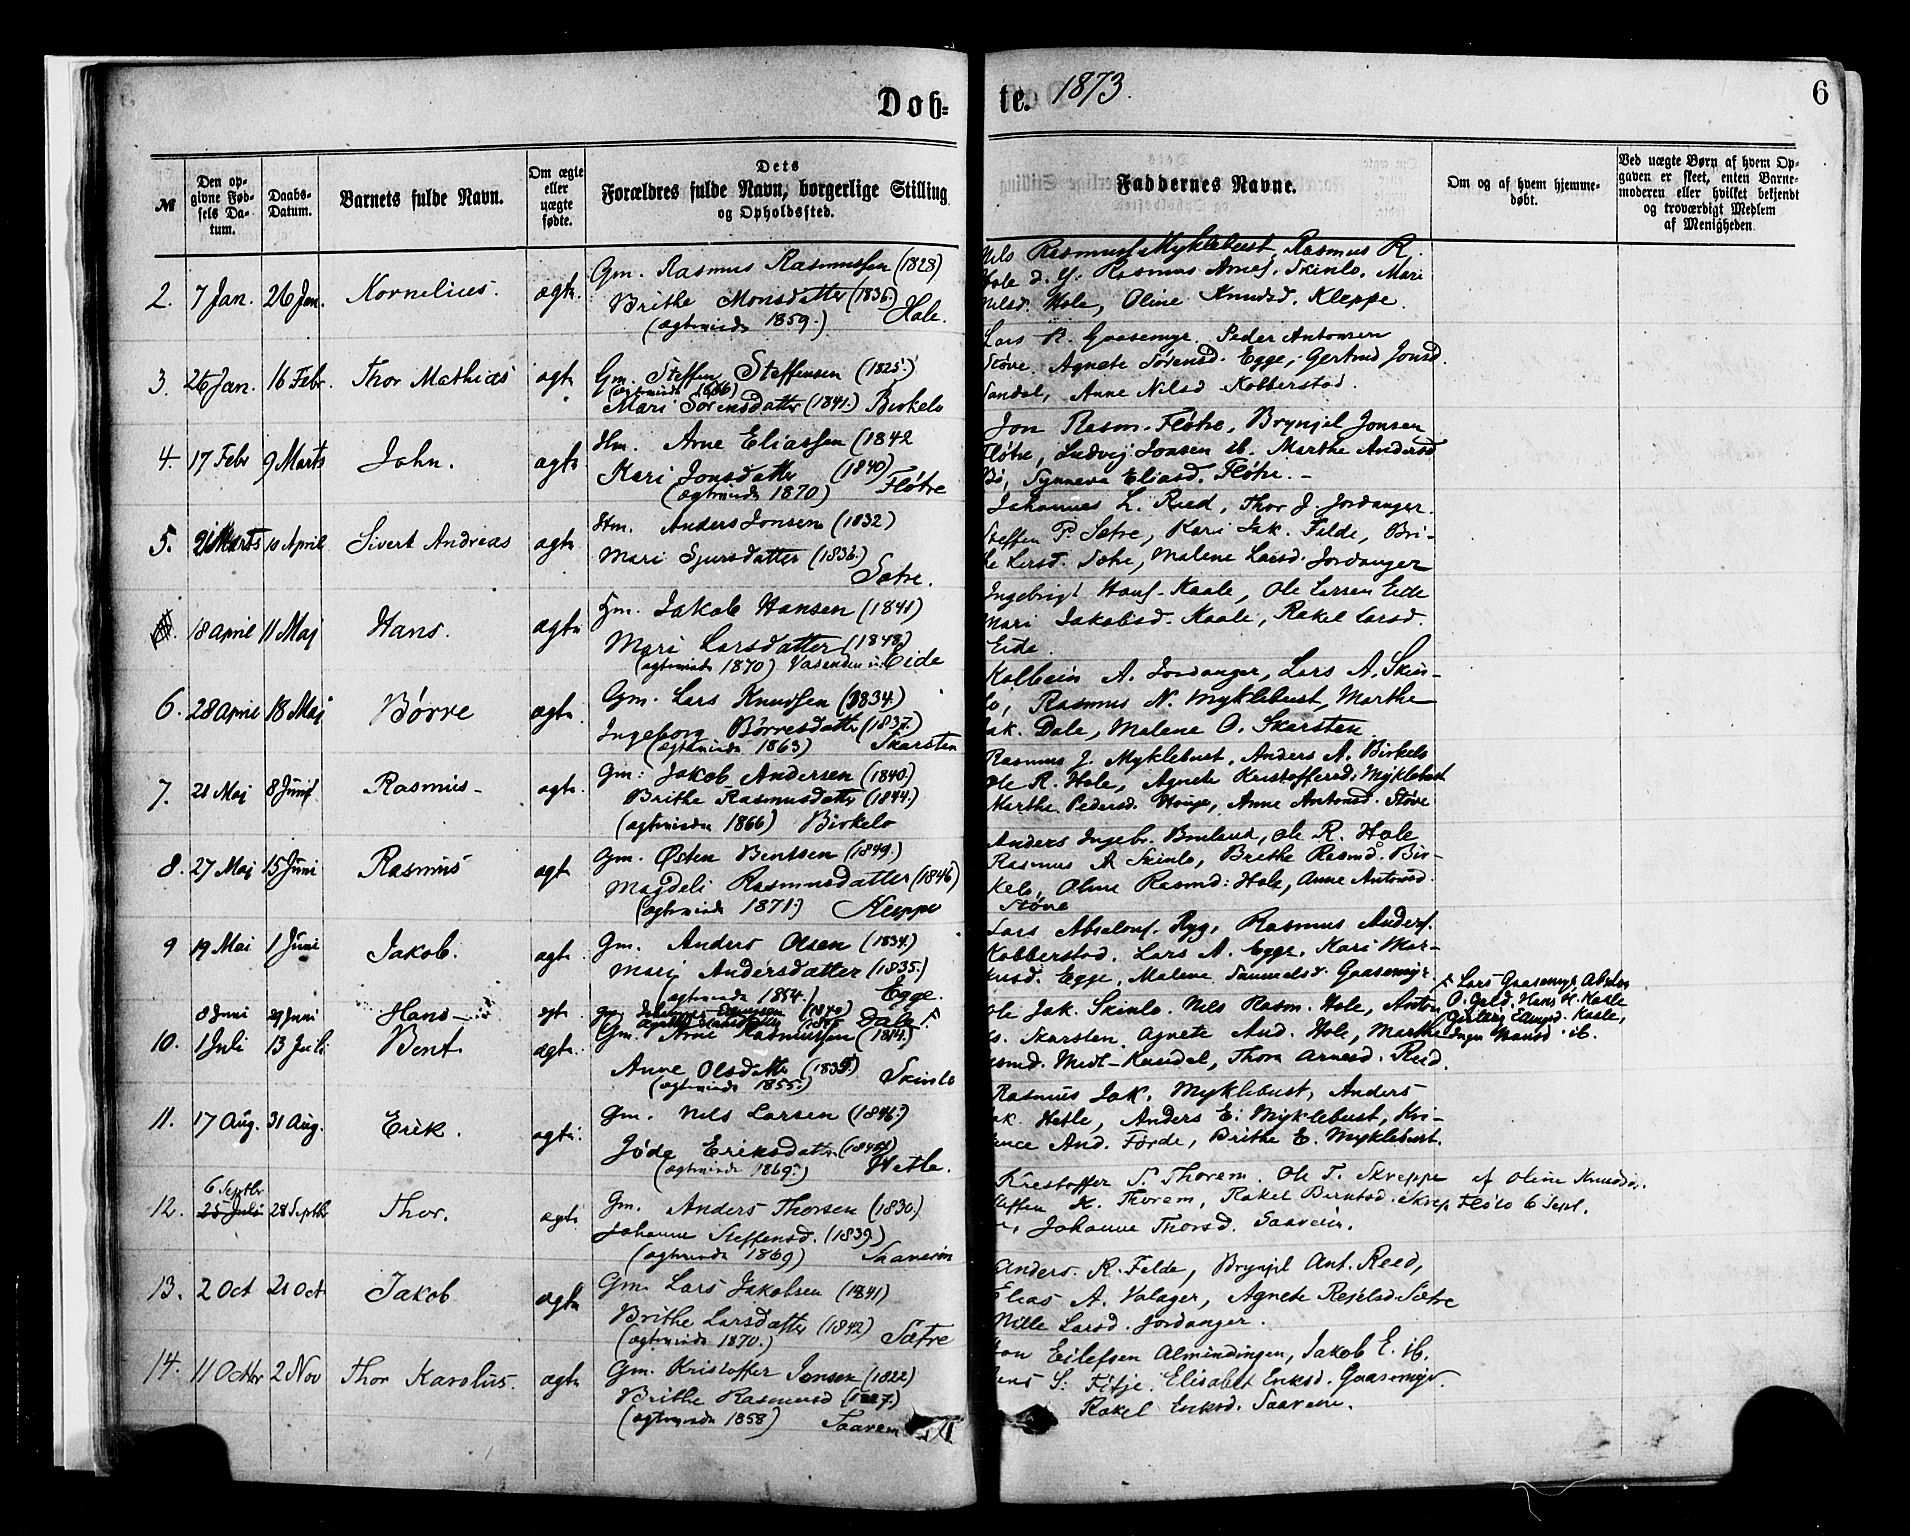 Døb-
te. 1873.
6
№
Den op-
givne Fød-
sels Da-
tum.
Daabs-
Datum.
Barnets fulde Navn.
Om ægte
eller
uægte
fødte.
Dets
Forældres fulde Navn, borgerlige Stilling
og Opholdssted.
Faddernes Navne.
Om og af hvem hjemme-
døbt.
Ved uægte Børn af hvem Op-
gaven er skeet, enten Barne-
moderen eller hvilket bekjendt
og troværdigt Medlem
af Menigheden.
2. 7 Jan. 26 Jan. Kornelius. ægte
Gm. Rasmus Rasmussen (1828)
Brithe Monsdatter (1836.)
(ægteviede 1859.) Hole.
Nils Rasmuss. Myklebust, Rasmus R.
Hole d. Y. Rasmus Arnes. Skinlo. Mari
Nilsd. Hole, Oline Knudsd. Kleppe.
3. 26 Jan. 16 Febr. Thor Mathias ægte
Gm. Steffen Steffensen (1825.)
(ægteviede 1866)
Mari Sørensdatter (1841.) Birkelo
Lars R. Gaasemyr. Peder Antonsen
Støve. Agnete Sørensd. Egge, Gertrud Jonsd.
Sandal, Anne Nilsd Kobberstad.
4. 17 Febr 9 Marts John. ægte
Hm. Arne Eliassen (1842
Kari Jonsdatter (1840)
(ægteviede 1870) Fløtre
Jon Rasm. Fløtre, Brynjel Jonsen
Fløtre, Ludvig Jonsen ib. Marthe Andersd
Bö, Synneva Eliasd. Fløtre. -
5. 21 Marts 10 April Sivert Andreas ægte
Hm. Anders Jonsen (1832)
Mari Sjursdatter (1836.)
Sætre.
Johannes L. Reed, Thor J. Jordanger.
Steffen P. Sætre, Kari Jak. Felde, Bri-
the Larsd. Sætre, Malene Larsd. Jordanger
18 April 11 Maj Hans. ægte
Hm. Jakob Hansen (1841)
Mari Larsdatter (1848)
(ægteviede 1870) Vasenden u. Eide
Ingebrigt Hans. Kaale, Ole Larsen Eide
Mari Jakobsd. Kaale, Rakel Larsd.
Eide.
6. 28 April 18 Maj Børre ægte
Gm. Lars Knudsen (1834.)
Ingeborg Børresdatter (1837.)
(ægteviede 1863) Skarsten
Kolbein A. Jordanger, Lars A. Skin-
lo, Rasmus N. Myklebust, Marthe
Jak. Dale, Malene O. Skarsten
7. 21 Maj 8 Juni Rasmus ægte.
Gm. Jakob Andersen (1840.)
Brithe Rasmusdatter (1844.)
(ægteviede 1866) Birkelo
Rasmus J. Myklebust. Anders A. Birkelo
Ole R. Hole, Agnete Kristoffersd. Myklebust
Marthe Pedersd. Hauge, Anne Antonsd. Støve
8. 27 Maj 15 Juni Rasmus ægte
Gm. Østen Bentsen (1849.)
Magdeli Rasmusdatter (1846)
(ægteviede 1871.) Kleppe
Anders Ingebr. Breland, Ole R. Hole
Rasmus A Skinlo, Brithe Rasmd. Bir-
kelo, Oline Rasmd. Hole, Anne Antonsd.
Støve
9 19 Mai 1 Juni Jakob. ægte.
Gm. Anders Olsen (1834.)
Mari Andersdatter (1835.)
(ægteviede 1854.) Egge.
Lars Absalons. Ryg, Rasmus Anders.
Kobberstad. Lars A. Egge, Kari Mar-
kusd. Egge, Malene Samuelsd. Gaasemyr.
8 Juni 29 Juni Hans - ægt.
Dale
Lars Gaasemyr, Absalon
O. Gjeld, Hans H. Kaale
Kaale,
Inger Hansd. ib.
10. 1 Juli 13 Juli Bent ægte.
Gm. Arne Rasmussen (1814.)
Anne Olsdatter
(ægteviede 1855.) Skinlo
Ole Jak. Skinlo. Nils Rasm. Hole, Anton
Skarsten, Agnete And. Hole, Marthe
Rasmd. Midt-Kandal, Thora Arnesd. Reed.
11. 17 Aug. 31 Aug. Erik. ægte.
Gm. Nils Larsen (1846.)
Jøde Eriksdatter
(ægteviede 1869.) Hetle.
Rasmus Jak. Myklebust, Anders
Jak. Hetle, Anders E. Myklebust, Kri-
And. Førde, Brithe E. Myklebust.
12. 6 Septbr 25 Juli 28 Septbr Thor. ægte
Gm. Anders Thorsen (1830.)
Johanne Steffensd. (1839)
(ægteviede 1869) Saaveim
Kristoffer S. Thorem. Ole T. Skreppe
Steffen K. Thorem, Rakel Berntsd. Skrep
Johanne Thorsd. Saaveim.
af Oline Knudsd.
Fløto 6 Sept.
13. 2 Oct 21 Oct Jakob ægte
Gm. Lars Jakobsen (1841)
Brithe Larsdatter (1842)
(ægteviede 1870.) Sætre
Anders. R. Felde, Brynjel Ant. Reed,
Elias A. Valager, Agnete Rejelsd. Sætre
Nille Larsd. Jordanger.
14. 11 Octbr 2 Nov Thor Karolus. ægte
Gm. Kristoffer Jonsen (1822)
Brithe Rasmusd (1827.)
(ægteviede 1858) Saaveim
Jon Eilefsen Almindingen, Jakob E. ib.
Jens S. Fitje. Elisabet Eriksd. Gaasemyr.
Rakel Eriksd. Saaveim.